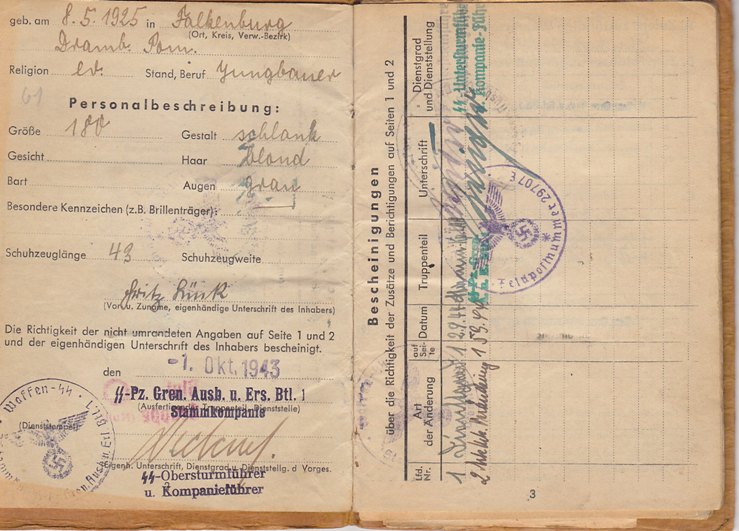 geb. am 8.5.1925 in Falkenburg
(Ort, Kreis, Verw.-Bezirk)
Dramb. Pom.
Religion ev. Stand, Beruf Jungbauer
61
Personalbeschreibung:
Größe 180 Gestalt schlank
Gesicht Haar blond
Bart Augen grau
Besondere Kennzeichen (z.B. Brillenträger):
Schuhzeuglänge 43 Schuhzeugweite
Fritz Lück
(Vor- u. Zuname, eigenhändige Unterschrift des Inhabers)
Die Richtigkeit der nicht umrandeten Angaben auf Seite 1 und 2
und der eigenhändigen Unterschrift des Inhabers bescheinigt.
den -1. Okt. 1943
SS-Pz. Gren. Ausb. u. Ers. Btl. 1
(Ausfertigender Truppenteil, Dienststelle)
Stammkompanie
(Dienststempel)
Waffen-SS
(Eigenh. Unterschrift, Dienstgrad u. Dienststellg. d. Vorges.
SS-Obersturmführer
u. Kompanieführer
Bescheinigungen
über die Richtigkeit der Zusätze und Berichtigungen auf Seiten 1 und 2
Lfd. Nr.
Art der Änderung
auf Seite
Datum
Truppenteil
Unterschrift
Dienstgrad und Dienststellung
1
2
SS-Untersturmführer
Kompanie-Führer
Feldpostnummer 29707 E
3